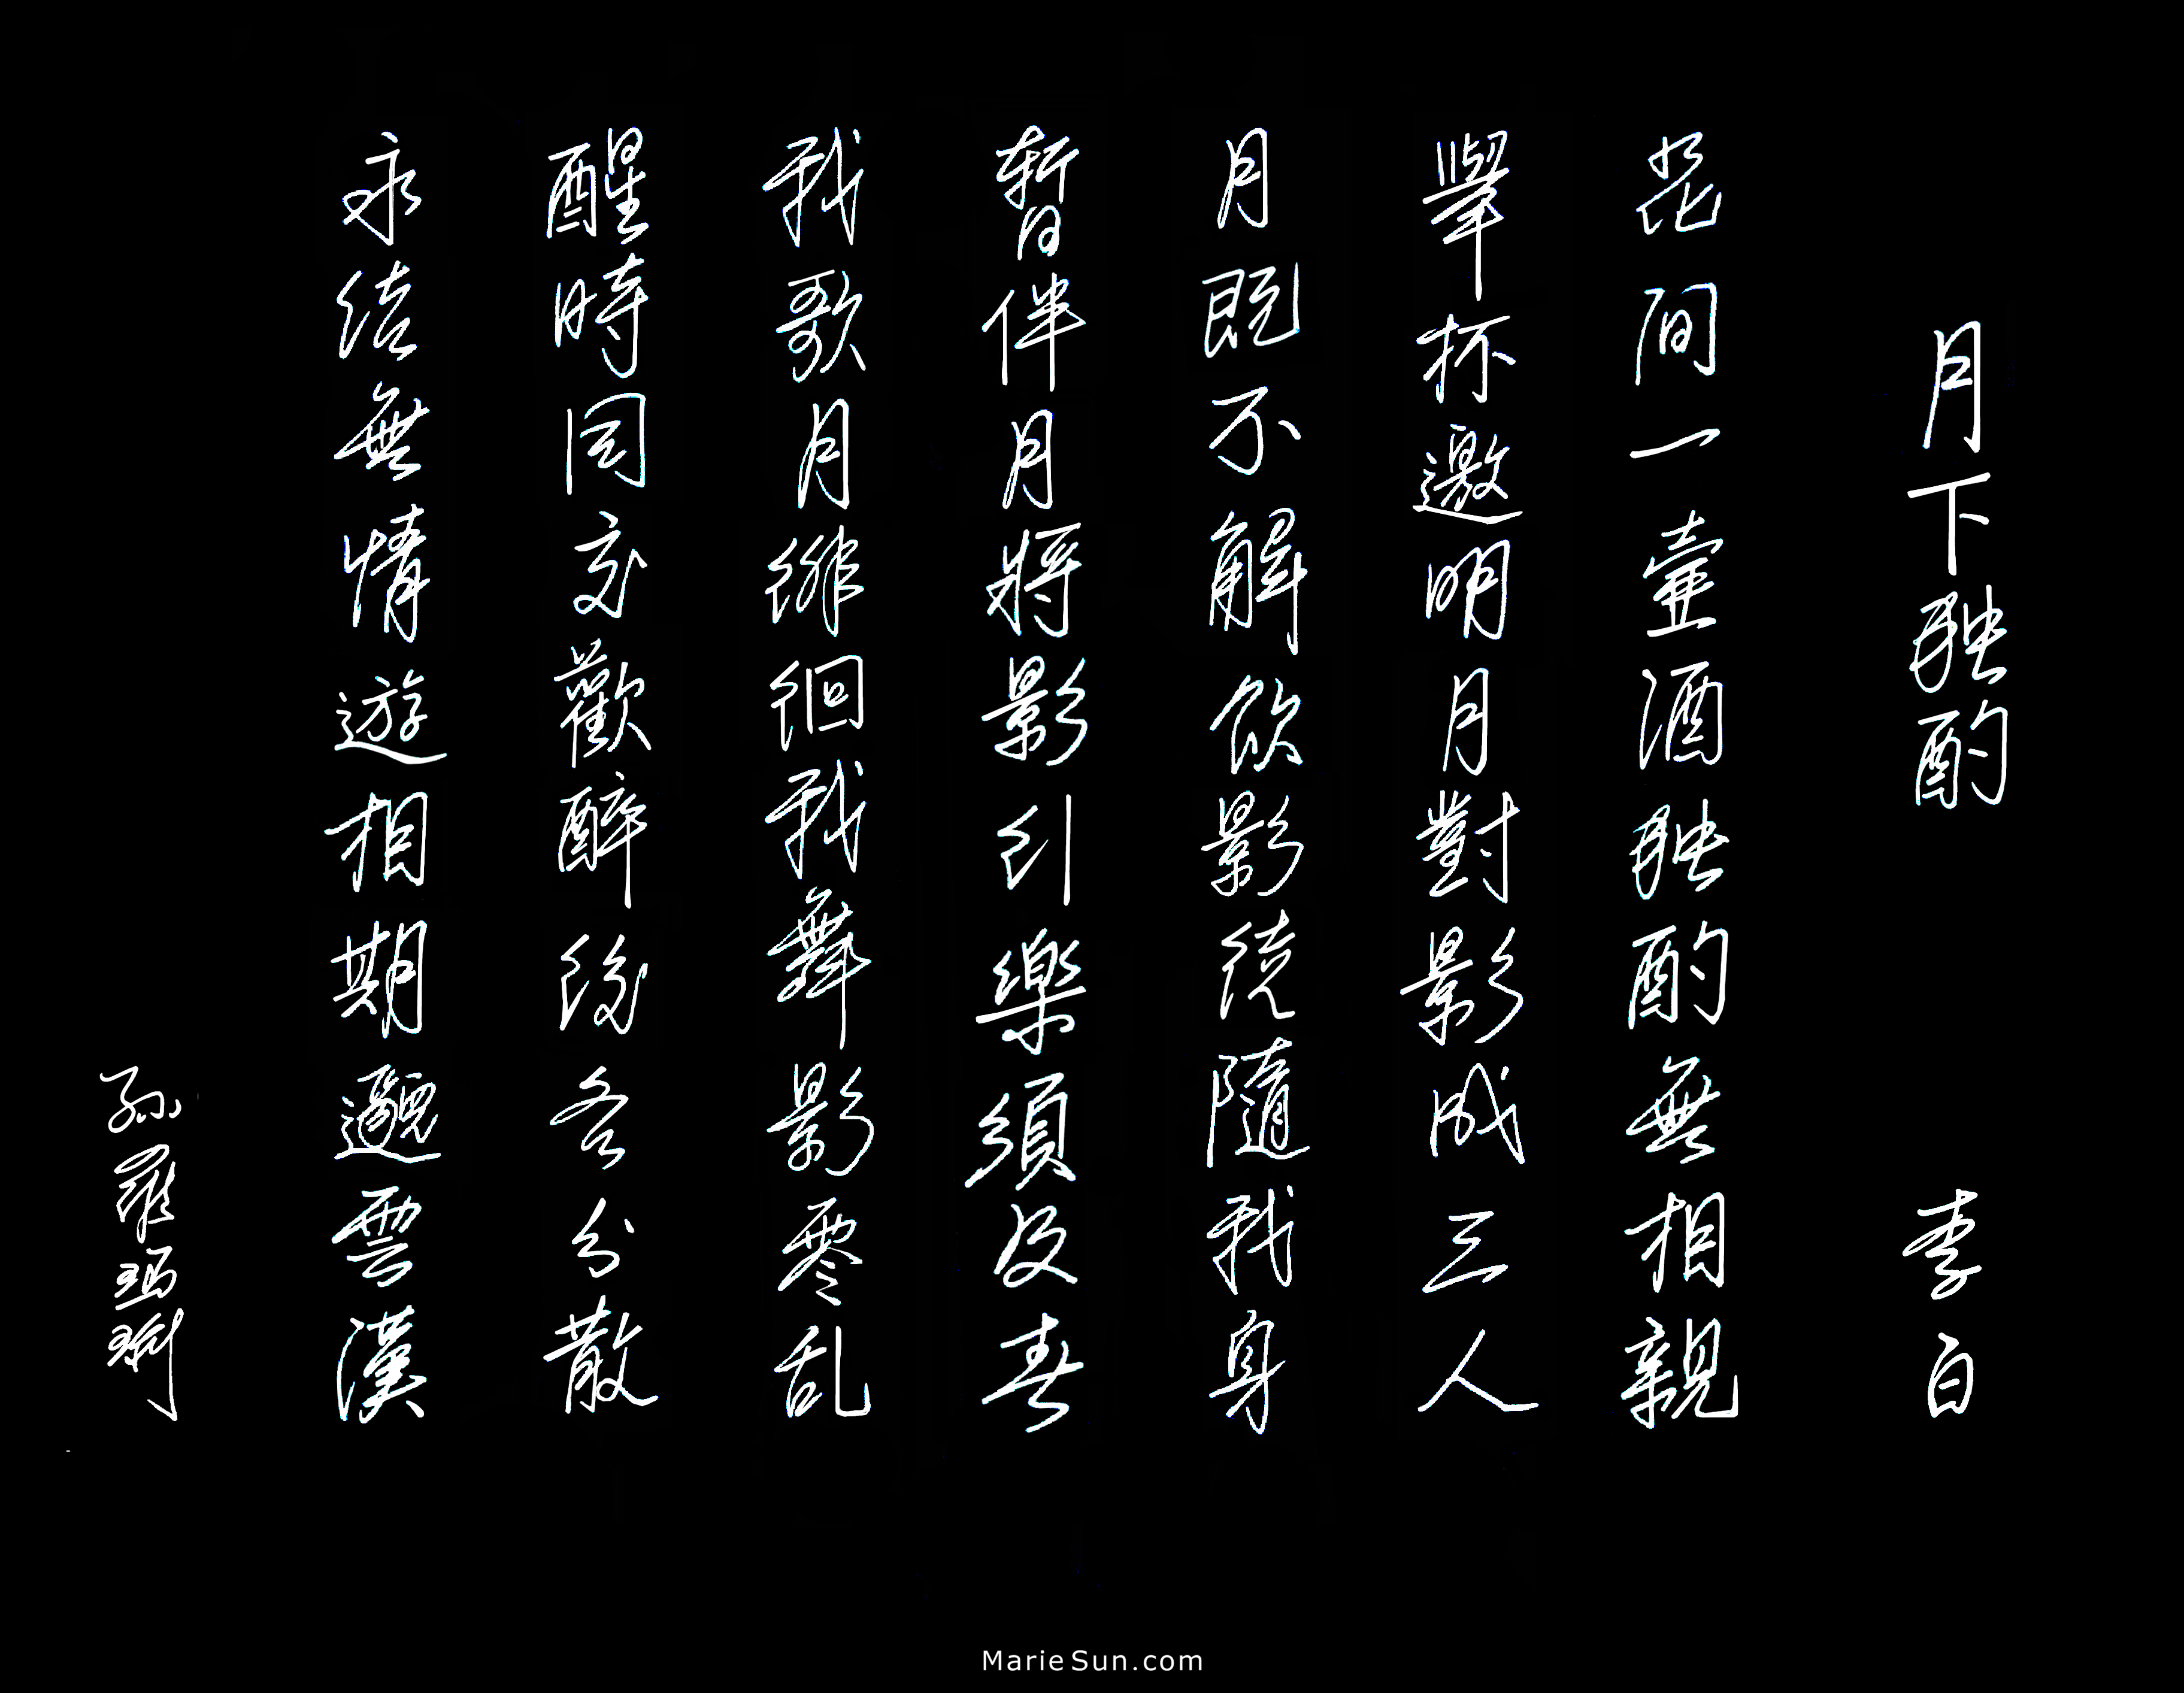 月下独酌 李白
花间一壺酒独酌無相親
舉杯邀明月對影成三人
月既不解飲影徒隨我身
暫伴月將影行樂須及春
我歌月徘徊我舞影零乱
醒時同交歡醉後各分散
永结無情遊相期邈雲漢
孫
MarieSun.com